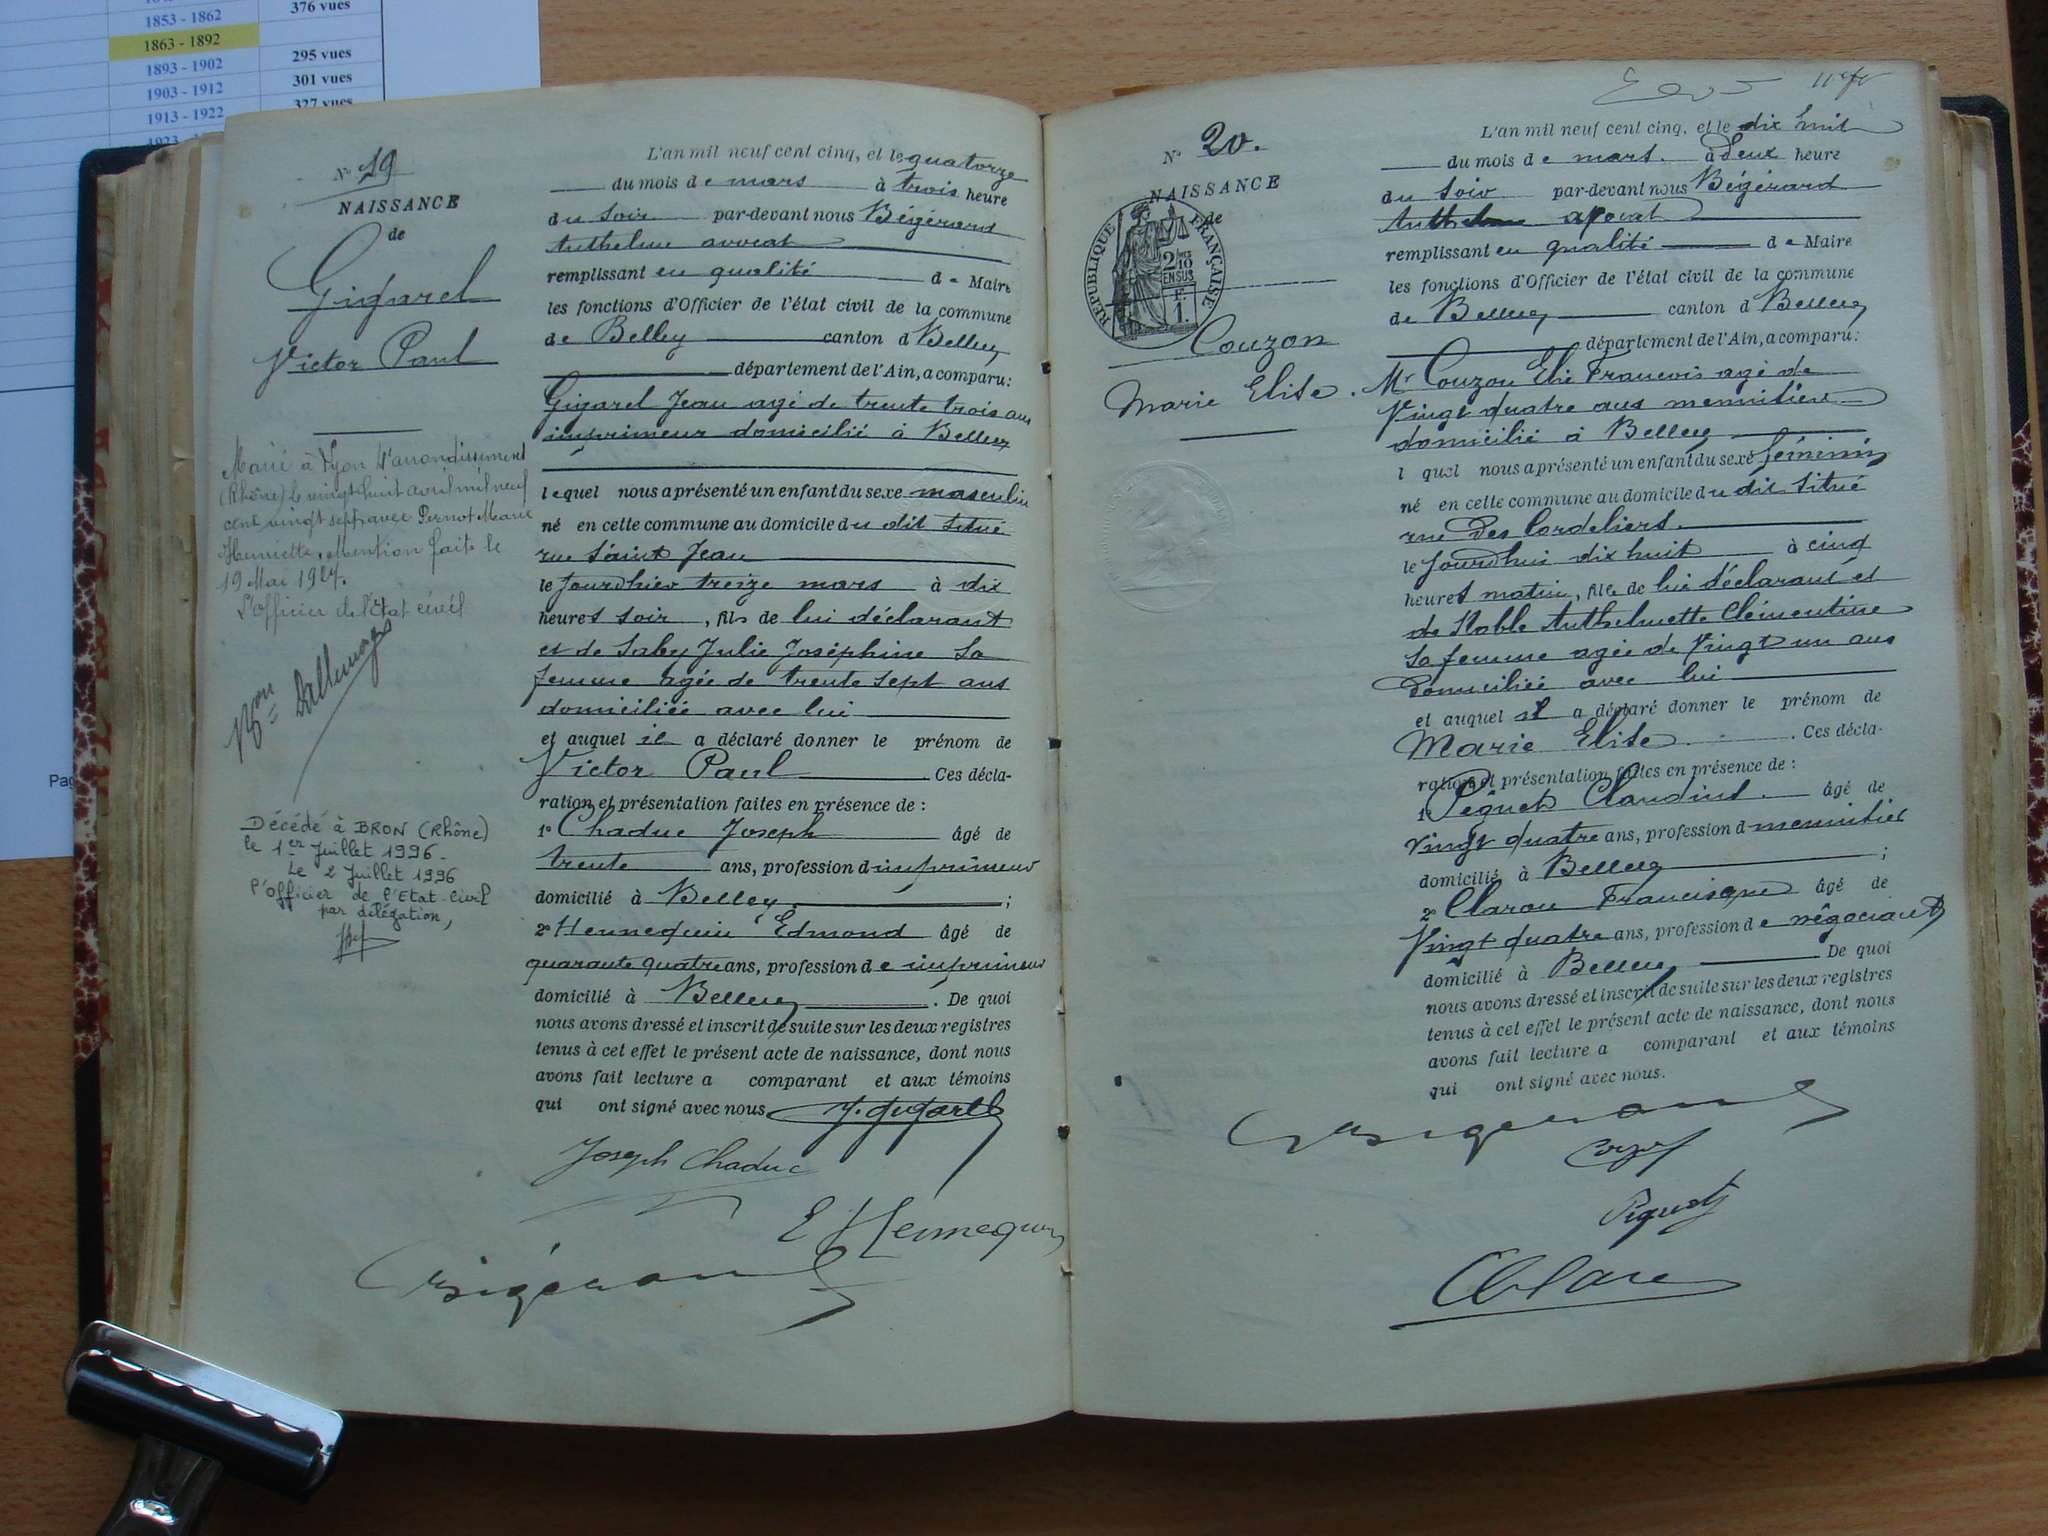 1853 - 1862
376 vues
1863 - 1892
1893 - 1902
295 vues
1903 - 1912
301 vues
1913 - 1922
327 vues
Pag
N° 19
NAISSANCE
de
Gigarel
Victor Paul
Marié à Lyon 4e arrondissement
(Rhône) le vingt huit avril mil neuf
cent vingt sept avec Pernot Marie
Henriette. Mention faite le
19 Mai 1927.
L'officier de l'Etat civil
Décédé à BRON (Rhône)
le 1er Juillet 1996.
Le 2 Juillet 1996
l'officier de l'Etat-Civil
par délégation,
L'an mil neuf cent cinq, et le quatorze
du mois de mars à trois heure
du soir par-devant nous Bégérard
Anthelme avocat
remplissant en qualité de Maire
les fonctions d'Officier de l'état civil de la commune
de Belley canton d Belley
département de l'Ain, a comparu:
Gigarel Jean agé de trente trois ans
imprimeur domicilié à Belley
lequel nous a présenté un enfant du sexe masculin
né en cette commune au domicile du dit situé
rue Saint Jean
le jourd'hier treize mars à dix
heures soir, fils de lui déclarant
et de Saby Julie Joséphine sa
femme agée de trente sept ans
domiciliée avec lui
et auquel il a déclaré donner le prénom de
Victor Paul. Ces décla-
ration et présentation faites en présence de :
1° Chaduc Joseph âgé de
trente ans, profession d imprimeur
domicilié à Belley ;
2° Hennequin Edmond âgé de
quarante quatre ans, profession de imprimeur
domicilié à Belley. De quoi
nous avons dressé et inscrit de suite sur les deux registres
tenus à cet effet le présent acte de naissance, dont nous
avons fait lecture a comparant et aux témoins
qui ont signé avec nous J. Gigarel
Joseph Chaduc
E Hennequin
N° 20.
NAISSANCE
de
RÉPUBLIQUE FRANÇAISE
2/10
EN SUS
1 F.
Couzon
Marie Elise.
L'an mil neuf cent cinq, et le dix huit
du mois de mars. à deux heure
du soir par-devant nous Bégérard
Anthelme avocat
remplissant en qualité de Maire
les fonctions d'Officier de l'état civil de la commune
de Belley canton d Belley
département de l'Ain, a comparu:
Mr Couzon Elie François agé de
Vingt quatre ans menuisier
domicilié à Belley
l quel nous a présenté un enfant du sexe féminin
né en cette commune au domicile du dit situé
rue Des Cordeliers.
le jourd'hui dix huit à cinq
heures matin, fille de lui déclarant et
de Anthelmette Clémentine
sa femme agée de Vingt un ans
domiciliée avec lui
et auquel il a déclaré donner le prénom de
Marie Elise. Ces décla-
ration et présentation faites en présence de :
1° Péguet Claudius. âgé de
vingt quatre ans, profession d menuisier
domicilié à Belley ;
2° Claron Francisque âgé de
Vingt quatre ans, profession de négociant
domicilié à Belley De quoi
nous avons dressé et inscrit de suite sur les deux registres
tenus à cet effet le présent acte de naissance, dont nous
avons fait lecture a comparant et aux témoins
qui ont signé avec nous.